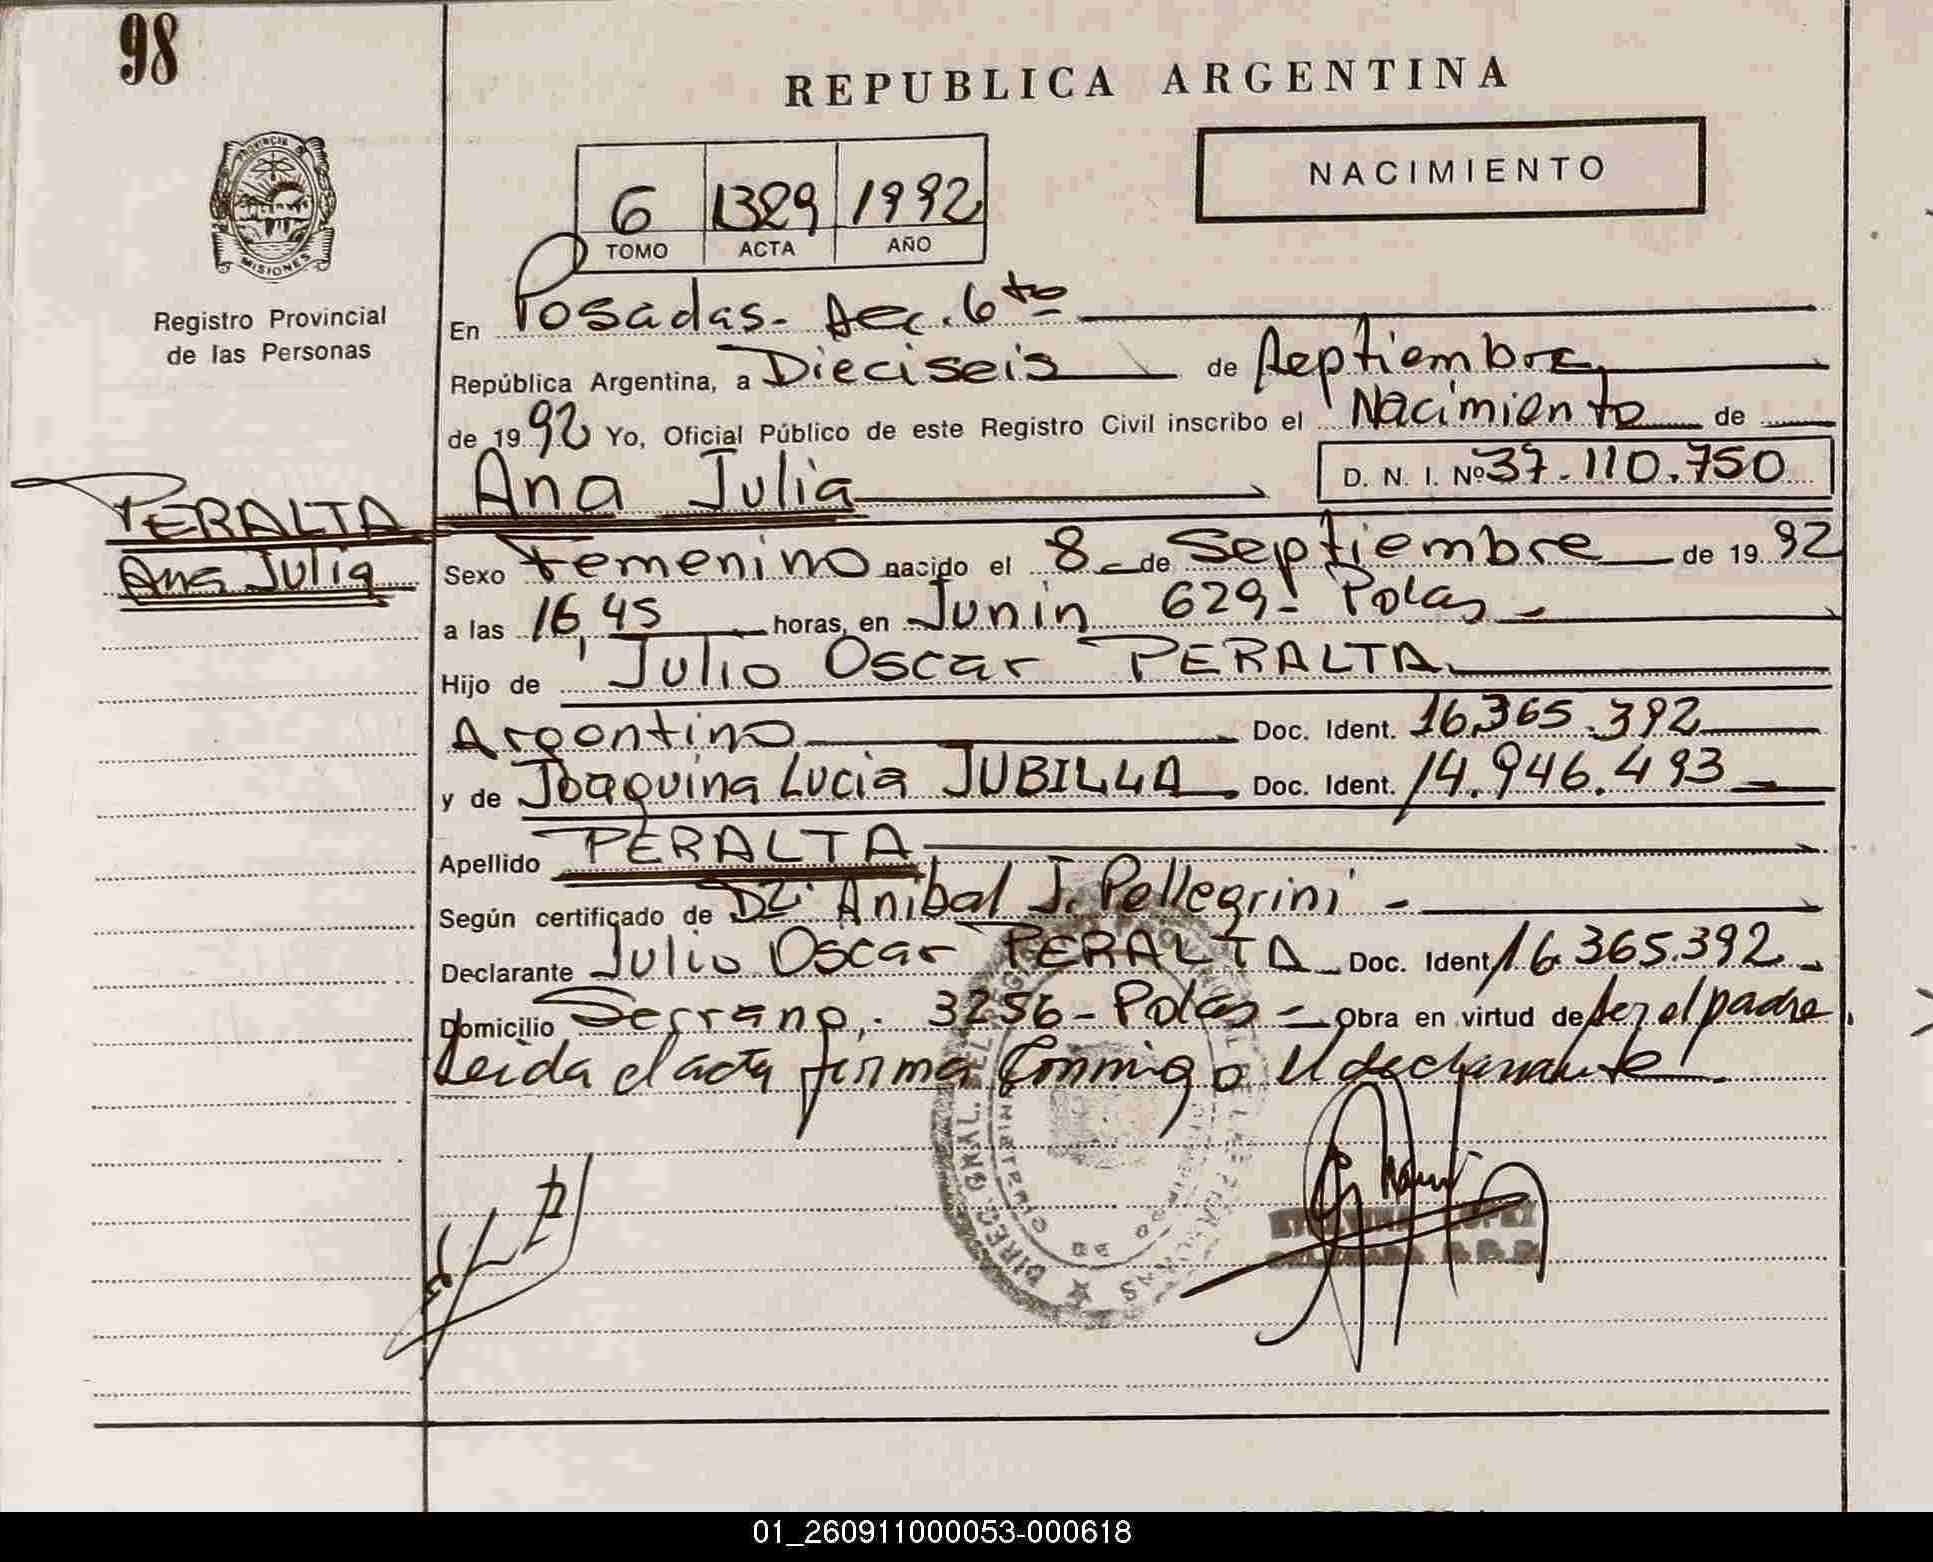 98
REPUBLICA ARGENTINA
NACIMIENTO
6 1329 1992
TOMO ACTA AÑO
PROVINCIA DE
MISIONES
Registro Provincial
de las Personas
En Posadas- Sec. 6to
República Argentina, a Dieciseis de Septiembre
de 1992 Yo, Oficial Público de este Registro Civil inscribo el Nacimiento de
Ana Julia D. N. I. Nº 37.110.750
PERALTA
Ana Julia
Sexo Femenino nacido el 8 de Septiembre de 1992
a las 16,45 horas, en Junin 629- Pdas -
Hijo de Julio Oscar PERALTA
Argentino Doc. Ident. 16.365.392
y de Joaquina Lucia JUBILLA. Doc. Ident. 14.946.493
Apellido PERALTA
Según certificado de Dr. Anibal J. Pellegrini -
Declarante Julio Oscar PERALTA Doc. Ident. 16.365.392
Domicilio Serrano, 3256- Pdas - Obra en virtud de ser el padre
Leida el acta firma conmigo el declarante.
DIREC. GRAL. DEL REG. DE LAS PERSONAS
MINISTERIO DE GOBIERNO
01_260911000053-000618